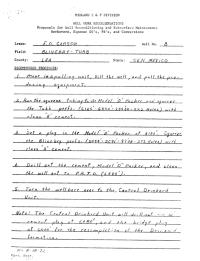 MIDLAND E & P DIVISION
WELL WORK RECOMMENDATIONS
Proposals for Well Reconditioning and Subsurface Maintenance
Workovers, Squeeze CO's, PB's, and Conversions
Lease: J.D. Sawson Well No. 8
Field: BLINEBRY-TUBB
County: LEA State: NEW MEXICO
RECOMMENDED PROCEDURE:
1. Move in pulling unit, kill the well, and pull the pro-
ducing equipment.
2. Run the squeeze tubing to the Model "D" Packer and squeeze
the Tubb perfs. with
class "A" cement.
3. Set a plug in the Model "D" Packer at Squeeze
the Blinebry perfs. with
class "A" cement.
4. Drill out the cement, Model "D" Packer, and clean
the well out to P.B.T.D.
5. Turn the wellbore over to the Central Drinkard
Unit.
Note: The Central Drinkard Unit will drill out
cement plug at and the bridge plug
at for the recompletion in the Drinkard
formation.